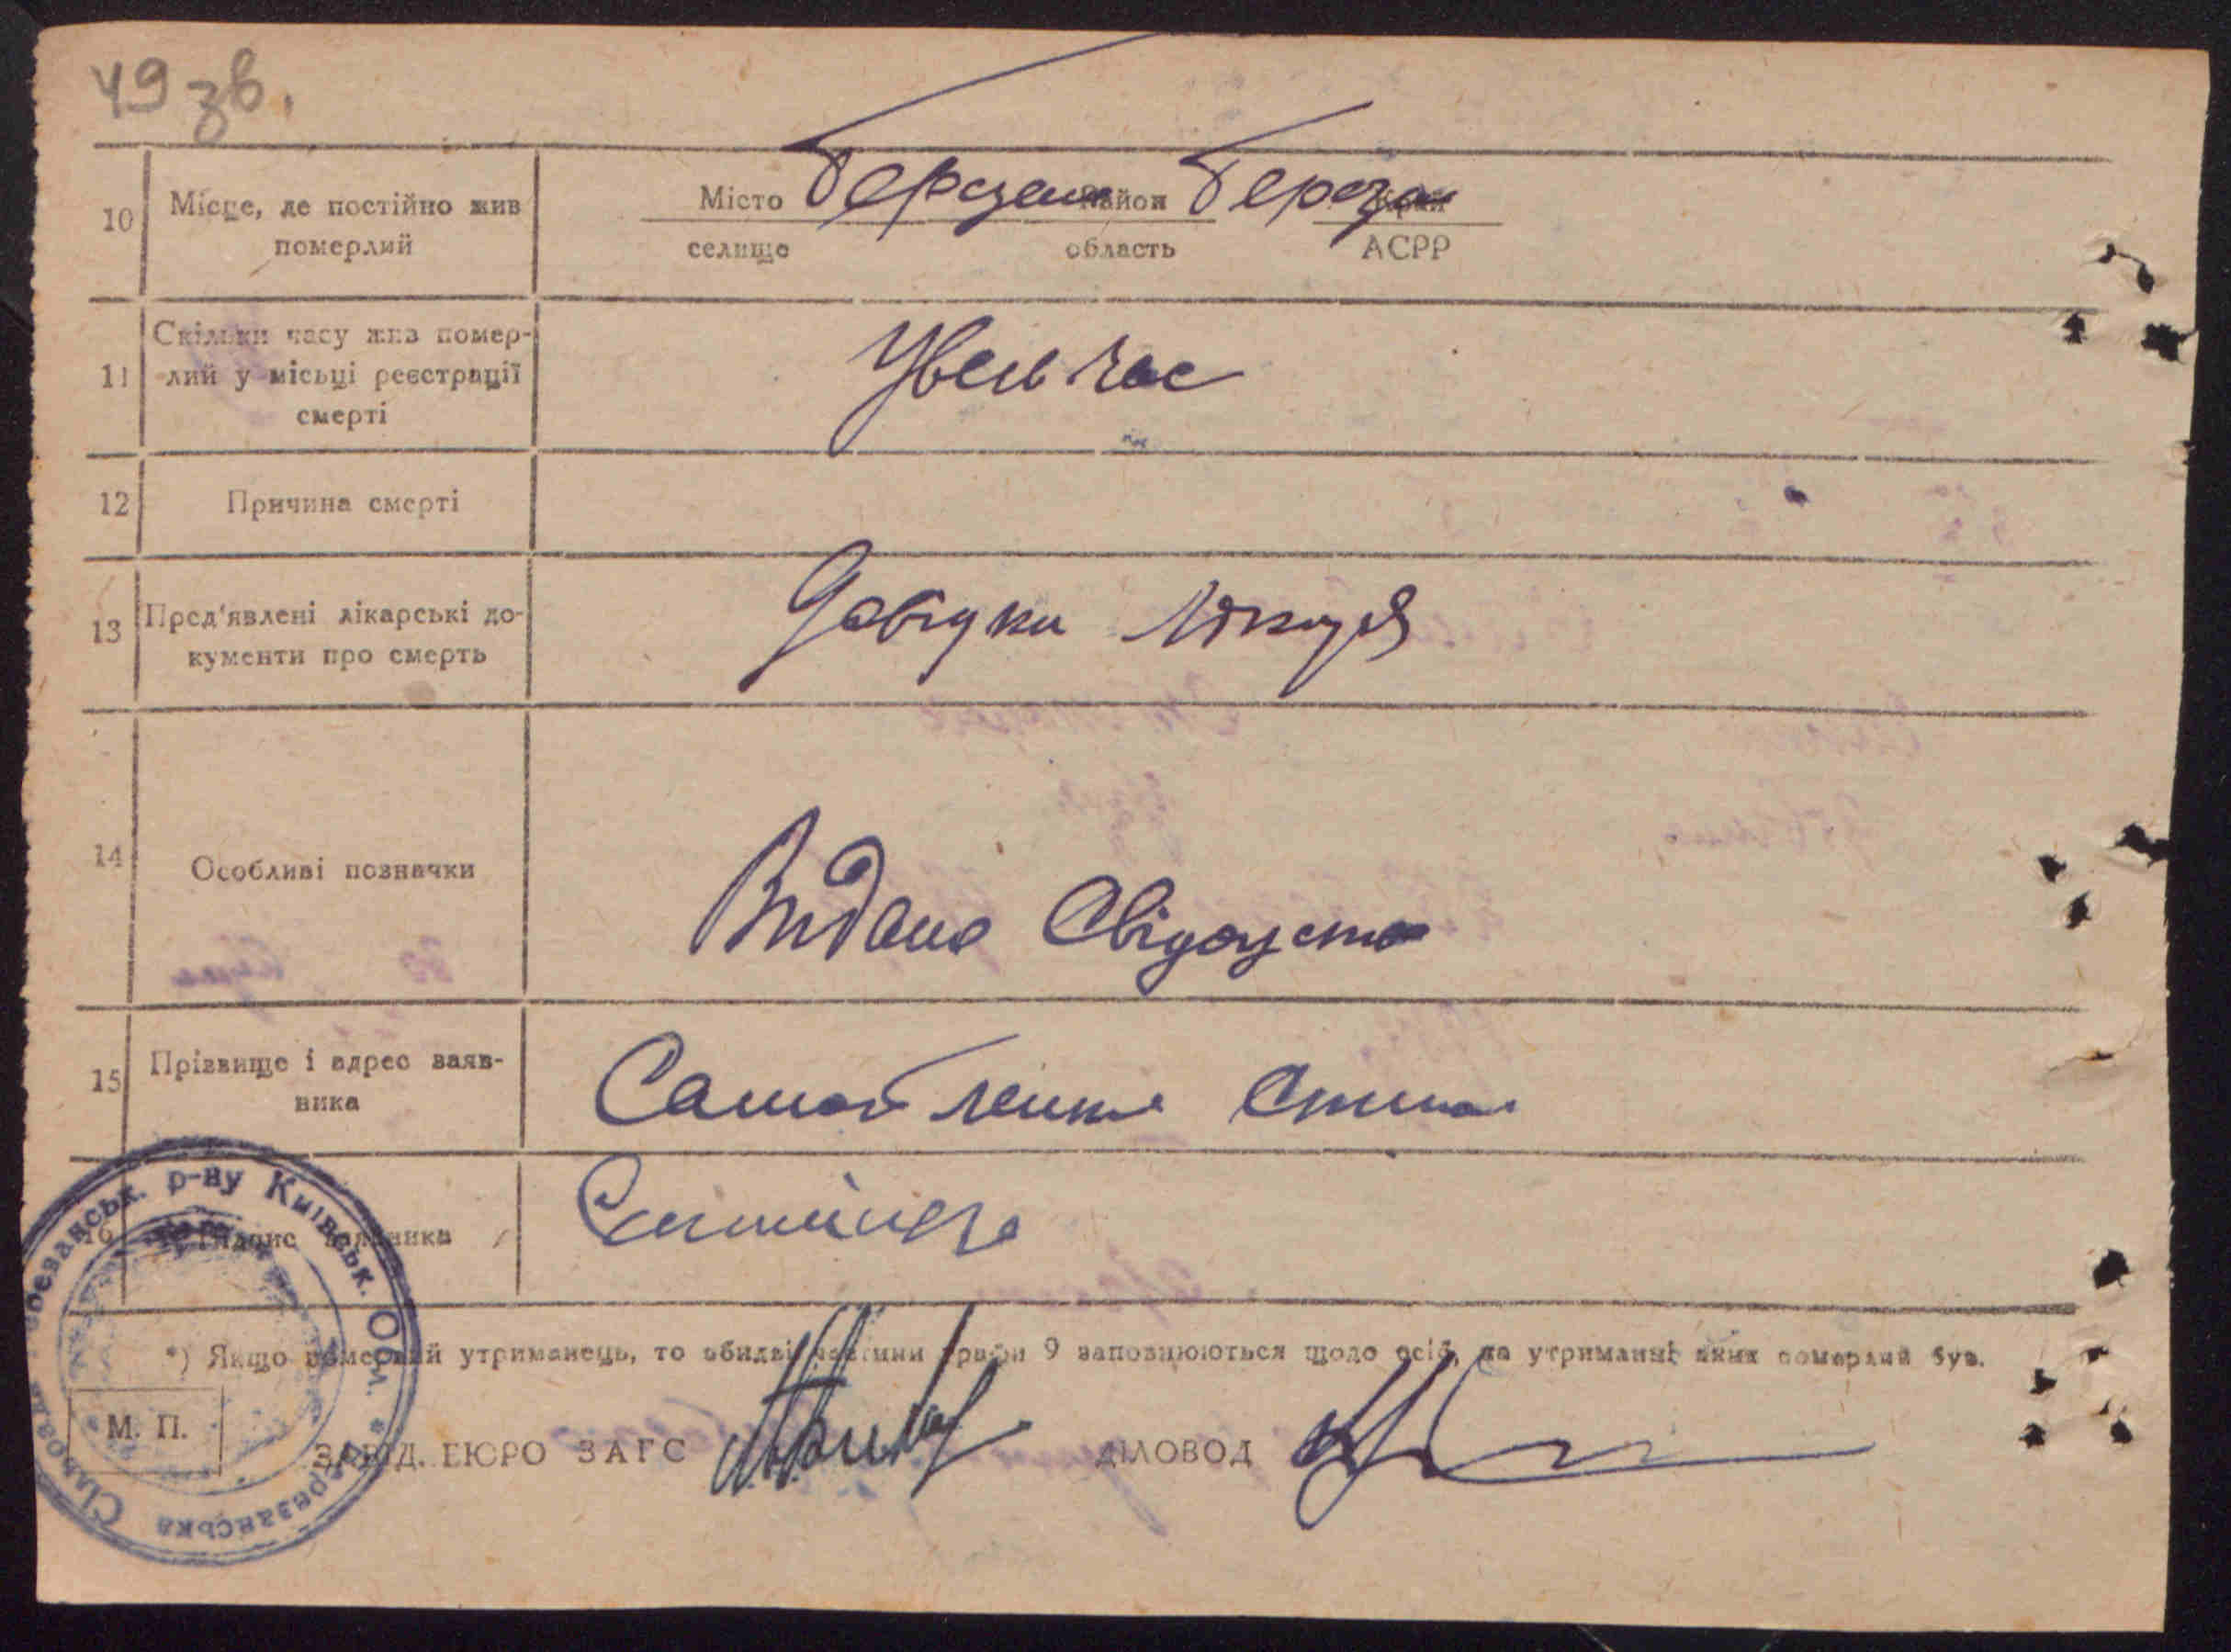 49 зв.
10 Місце, де постійно жив померлий
Місто Березань Район Береза Край
селище область АСРР
11 Скільки часу жив помер-
лий у місьці реєстрації
смерті
Увесь час
12 Причина смерті
13 Пред'явлені лікарські до-
кументи про смерть
Довідки Лікаря
14 Особливі позначки
Видано Свідоцтво
15 Прізвище і адрес заяв-
ника
16 Підпис заявника
*) Якщо померлий утриманець, то обидві частини графи 9 заповнюються щодо осіб, на утриманні яких померлий був.
М. П.
ЗАВІД. БЮРО ЗАГС
ДІЛОВОД
Березанськ. р-ну Київськ. Обл. * Березанська Сільозна